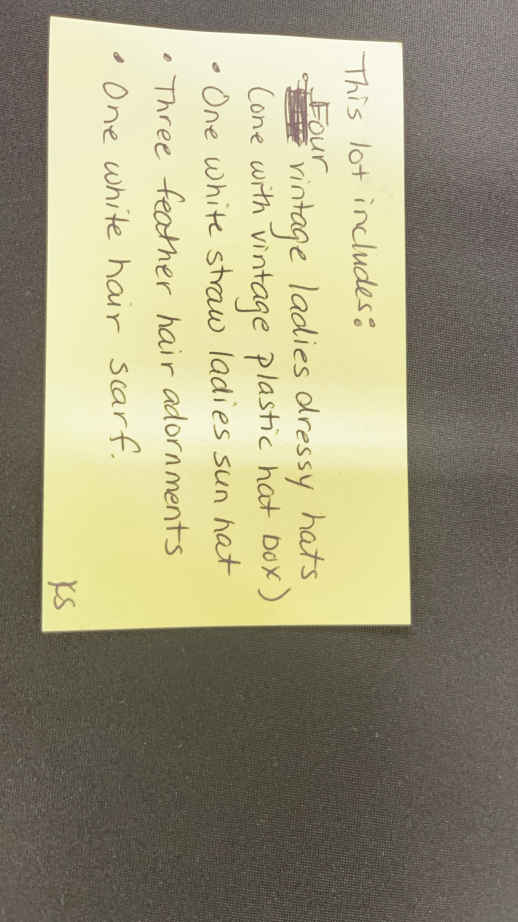 This lot includes:
• Four vintage ladies dressy hats
(one with vintage plastic hat box)
• One white straw ladies sun hat
• Three feather hair adornments
• One white hair scarf.
KS